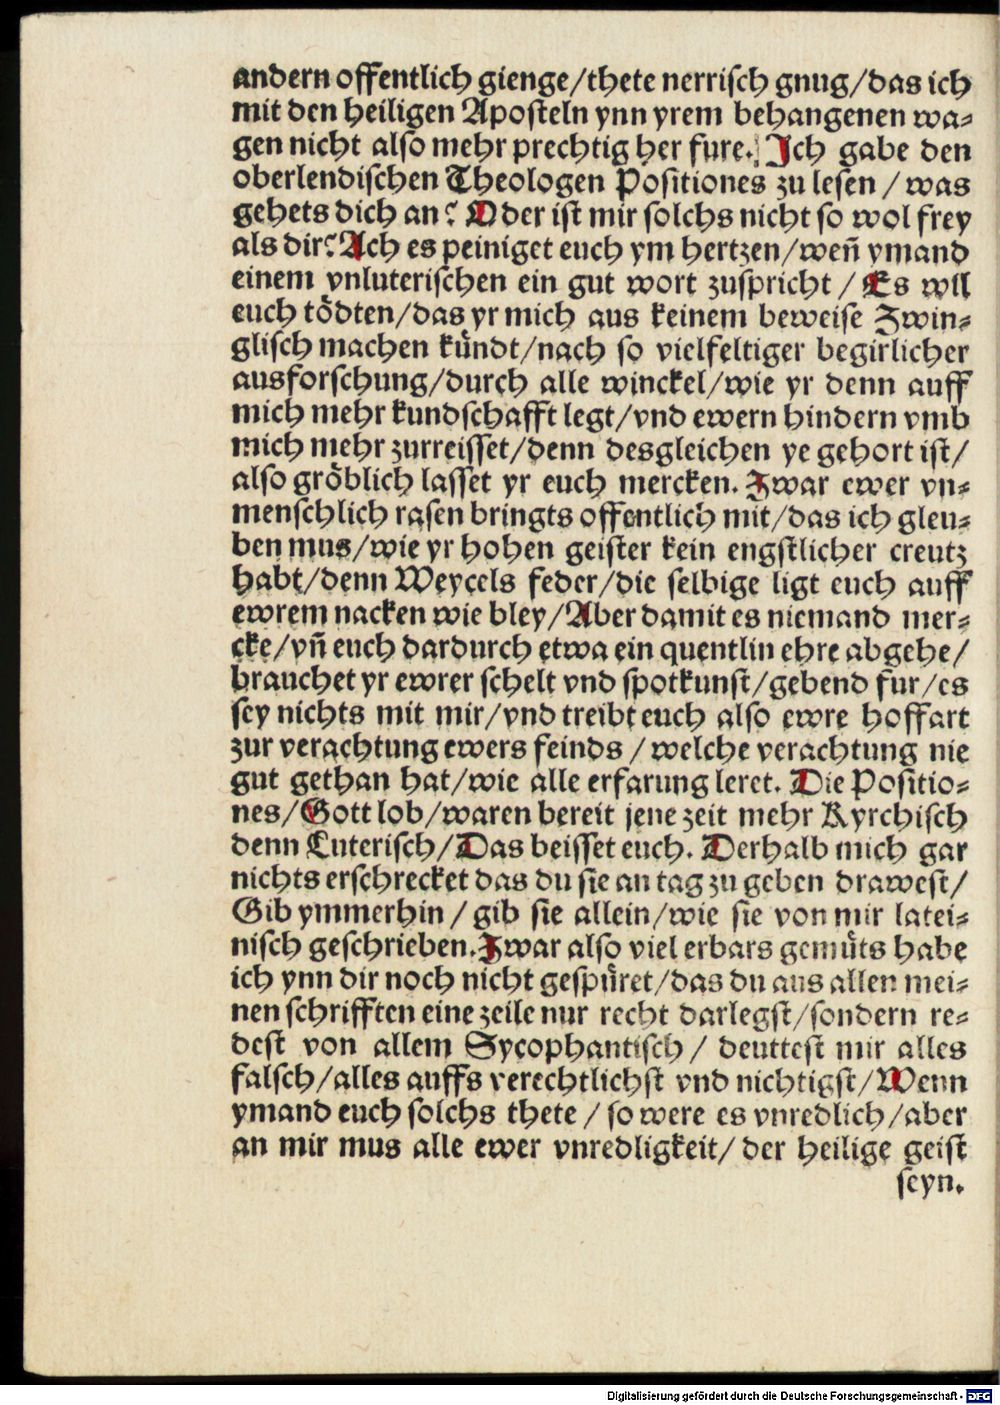 andern offentlich gienge/thete nerrisch gnug/das ich
mit den heiligen Aposteln ynn yrem behangenen wa-
gen nicht also mehr prechtig her fure. Ich gabe den
oberlendischen Theologen Positiones zu lesen / was
gehets dich an? Oder ist mir solchs nicht so wol frey
als dir? Ach es peiniget euch ym hertzen/weñ ymand
einem vnluterischen ein gut wort zuspricht / Es wil
euch tödten/das yr mich aus keinem beweise Zwin-
glisch machen kündt/nach so vielfeltiger begirlicher
ausforschung/durch alle winckel/wie yr denn auff
mich mehr kundschafft legt/vnd ewern hindern vmb
mich mehr zurreisset/denn desgleichen ye gehort ist/
also gröblich lasset yr euch mercken. Zwar ewer vn-
menschlich rasen bringts offentlich mit/das ich gleu-
ben mus/wie yr hohen geister kein engstlicher creutz
habt/denn Weycels feder/die selbige ligt euch auff
ewrem nacken wie bley/Aber damit es niemand mer-
cke/vñ euch dardurch etwa ein quentlin ehre abgehe/
brauchet yr ewrer schelt vnd spotkunst/gebend fur/es
sey nichts mit mir/vnd treibt euch also ewre hoffart
zur verachtung ewers feinds / welche verachtung nie
gut gethan hat/wie alle erfarung leret. Die Positio-
nes/Gott lob/waren bereit jene zeit mehr Kyrchisch
denn Luterisch/Das beisset euch. Derhalb mich gar
nichts erschrecket das du sie an tag zu geben drawest/
Gib ymmerhin / gib sie allein/wie sie von mir latei-
nisch geschrieben. Zwar also viel erbars gemüts habe
ich ynn dir noch nicht gespüret/das du aus allen mei-
nen schrifften eine zeile nur recht darlegst/sondern re-
dest von allem Sycophantisch / deuttest mir alles
falsch/alles auffs verechtlichst vnd nichtigst/Wenn
ymand euch solchs thete / so were es vnredlich/aber
an mir mus alle ewer vnredligkeit/ der heilige geist
seyn.
Digitalisierung gefördert durch die Deutsche Forschungsgemeinschaft - DFG